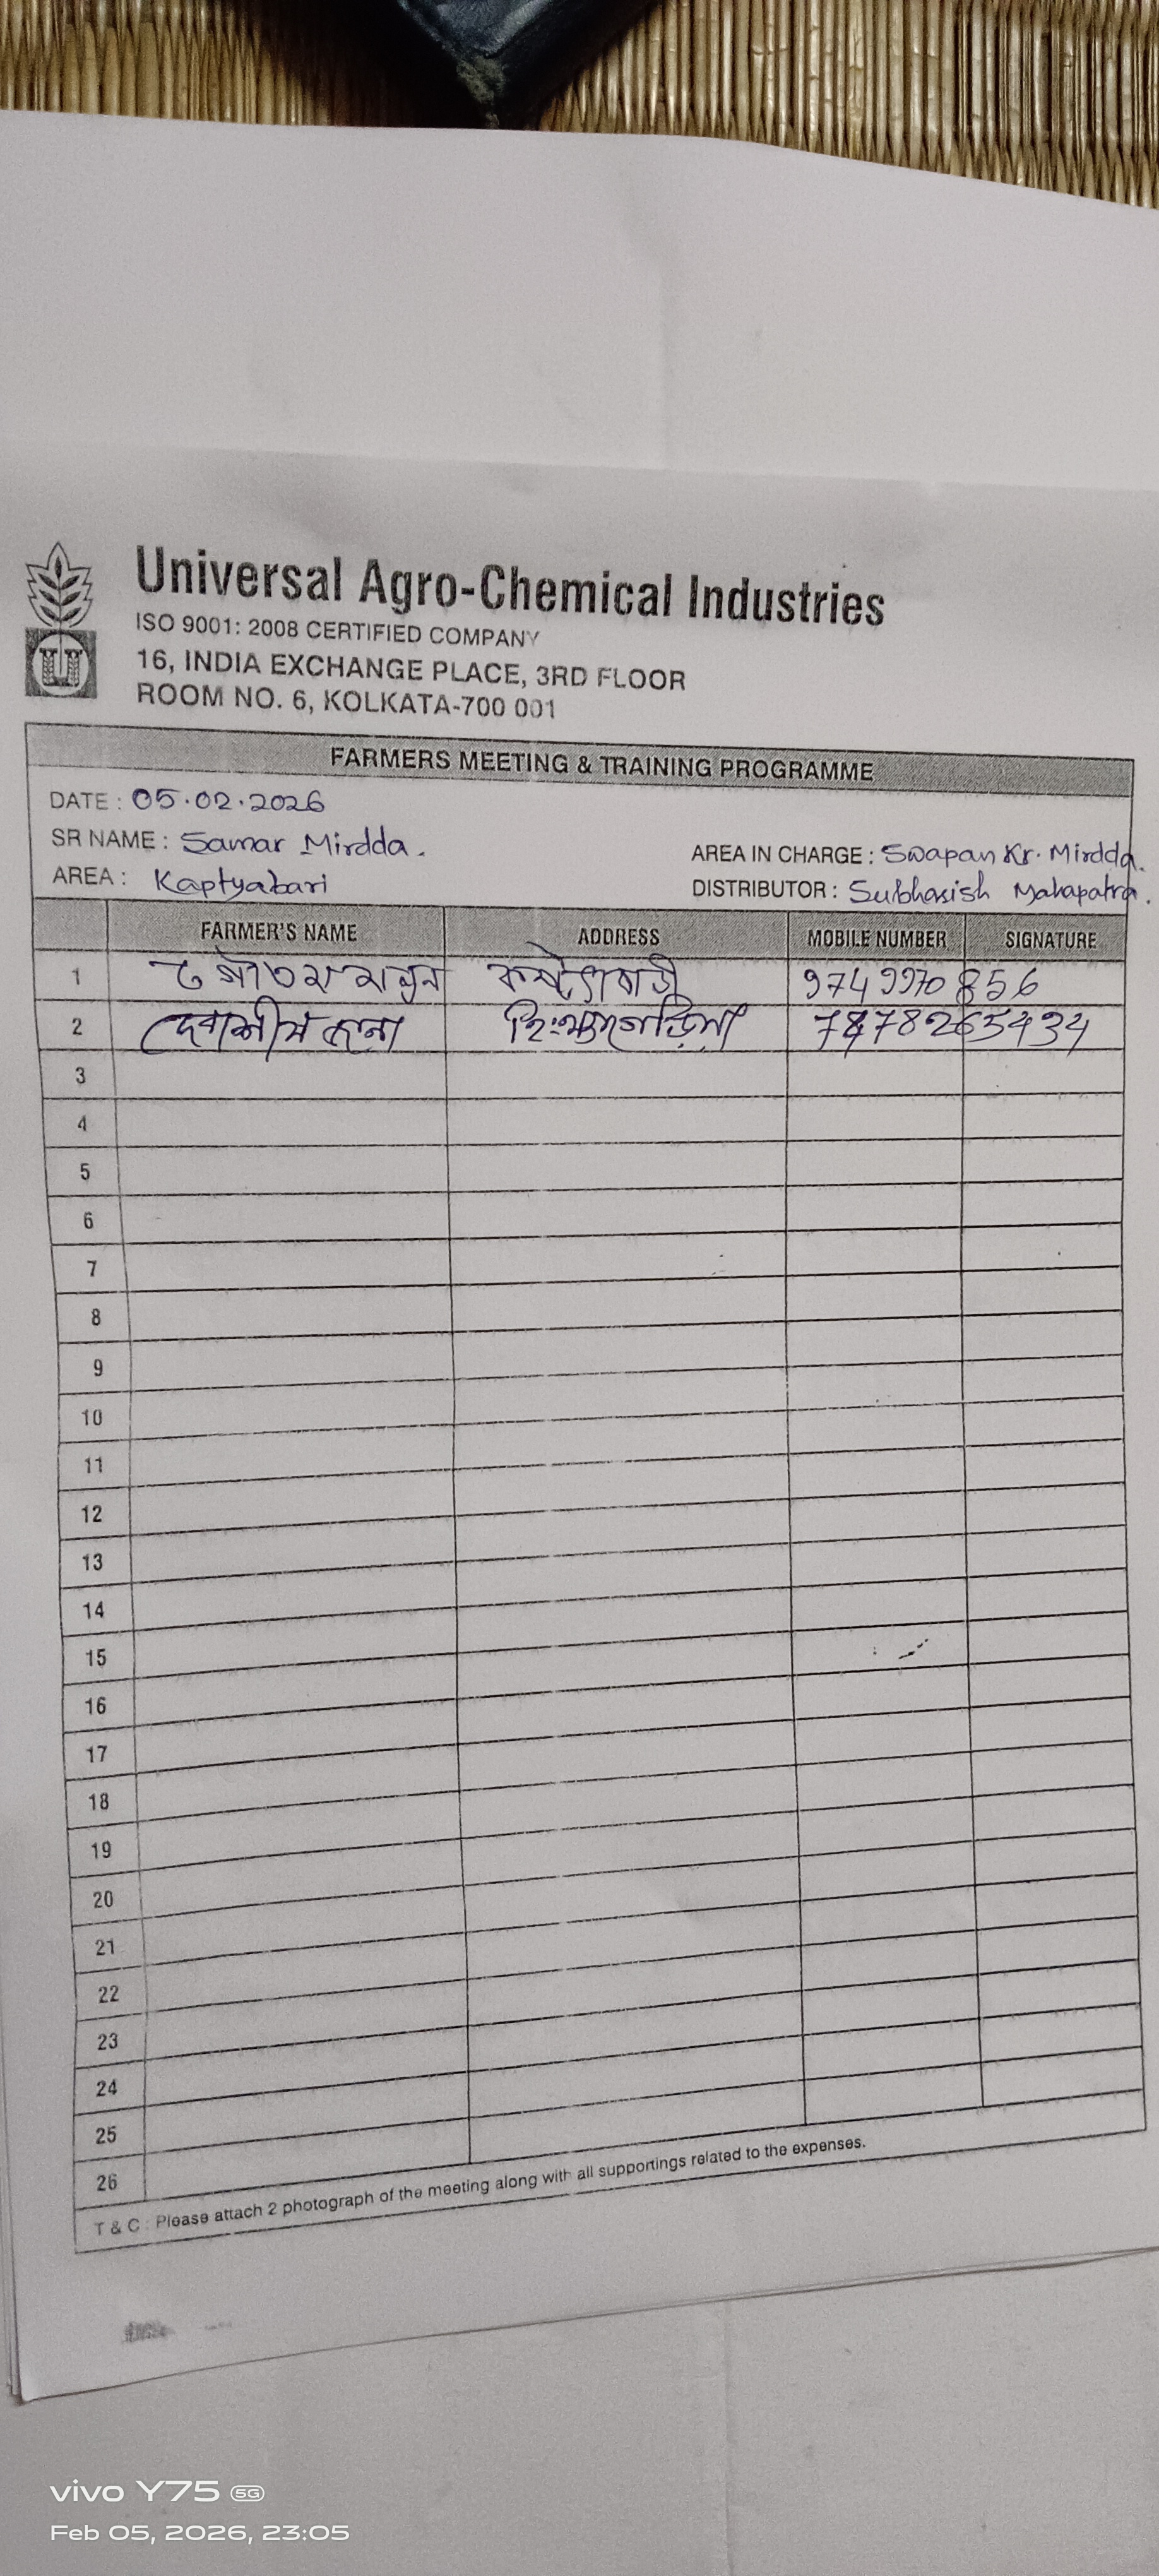 Universal Agro-Chemical Industries
ISO 9001: 2008 CERTIFIED COMPANY
16, INDIA EXCHANGE PLACE, 3RD FLOOR
ROOM NO. 6, KOLKATA-700 001
FARMERS MEETING & TRAINING PROGRAMME
DATE : 05.02.2026
SR NAME : Samar Mirdda.
AREA IN CHARGE : Swapan Kr. Mirdda.
AREA : Kaptyabari
DISTRIBUTOR : Subhasish Mahapatra.
FARMER'S NAME ADDRESS MOBILE NUMBER SIGNATURE
1 গৌতম 9749970856
2 দেবাশীষ জানা
3
4
5
6
7
8
9
10
11
12
13
14
15
16
17
18
19
20
21
22
23
24
25
26
T & C : Please attach 2 photograph of the meeting along with all supportings related to the expenses.
vivo Y75 5G
Feb 05, 2026, 23:05